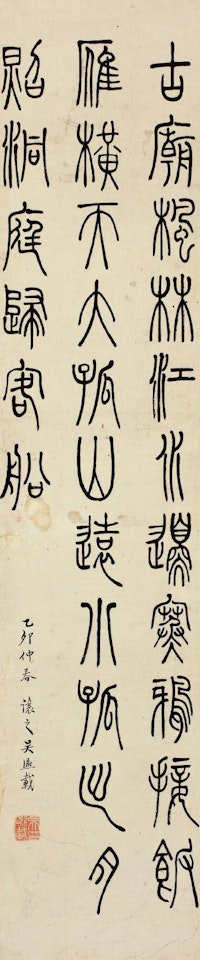 古廟楓林江水邊寒鴉接飯
雁橫天大孤山遠小孤出月
照洞庭歸客船
乙卯仲春 讓之吳熙載